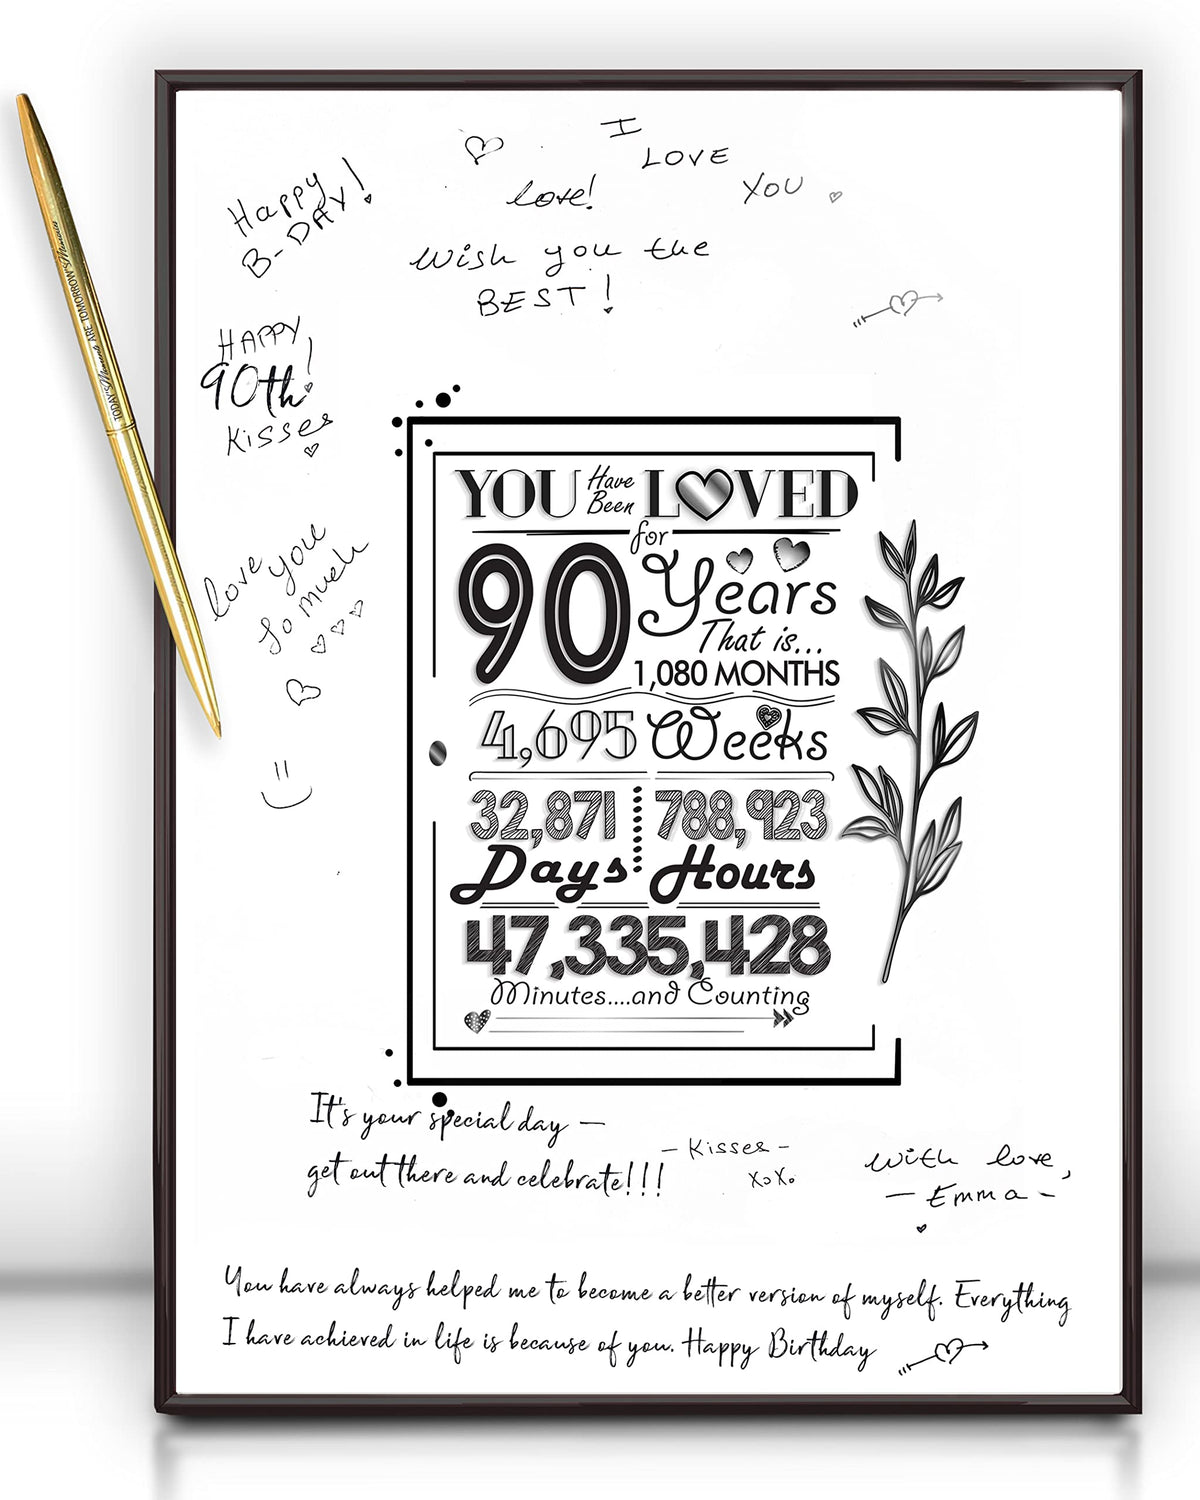 I
LOVE
YOU
love!
Happy
B-DAY!
Wish you the
BEST!
HAPPY
90th!
Kisses
TODAY'S Moments ARE TOMORROW'S Memories
love you
so much
YOU Have Been LOVED
for
90 Years
That is...
1,080 MONTHS
4,695 Weeks
32,871 788,923
Days Hours
47,335,428
Minutes....and Counting
It's your special day —
get out there and celebrate!!!
- Kisses -
XoXo
With love,
- Emma -
You have always helped me to become a better version of myself. Everything
I have achieved in life is because of you. Happy Birthday